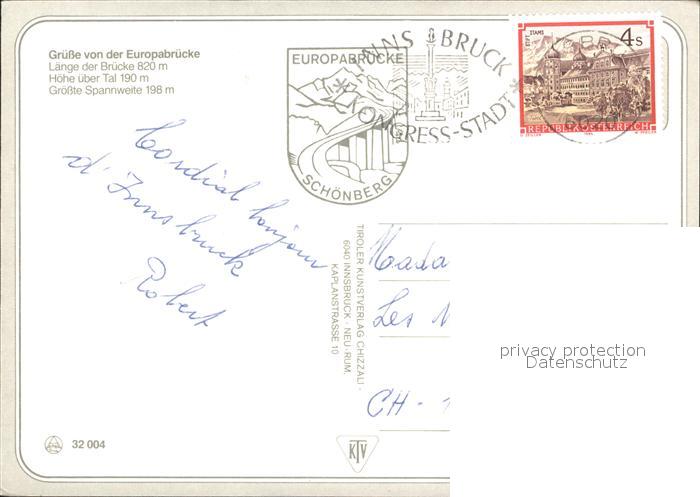 Grüße von der Europabrücke
Länge der Brücke 820 m
Höhe über Tal 190 m
Größte Spannweite 198 m
EUROPABRÜCKE
SCHÖNBERG
INNSBRUCK
KONGRESS-STADT
STIFT STAMS
4 S
REPUBLIK ÖSTERREICH
Cordial bonjour
d'Innsbruck
Robert
TIROLER KUNSTVERLAG CHIZZALI ·
6040 INNSBRUCK - NEU-RUM,
KAPLANSTRASSE 10
Mada
Les
CH - 1
privacy protection
Datenschutz
32 004
KTV